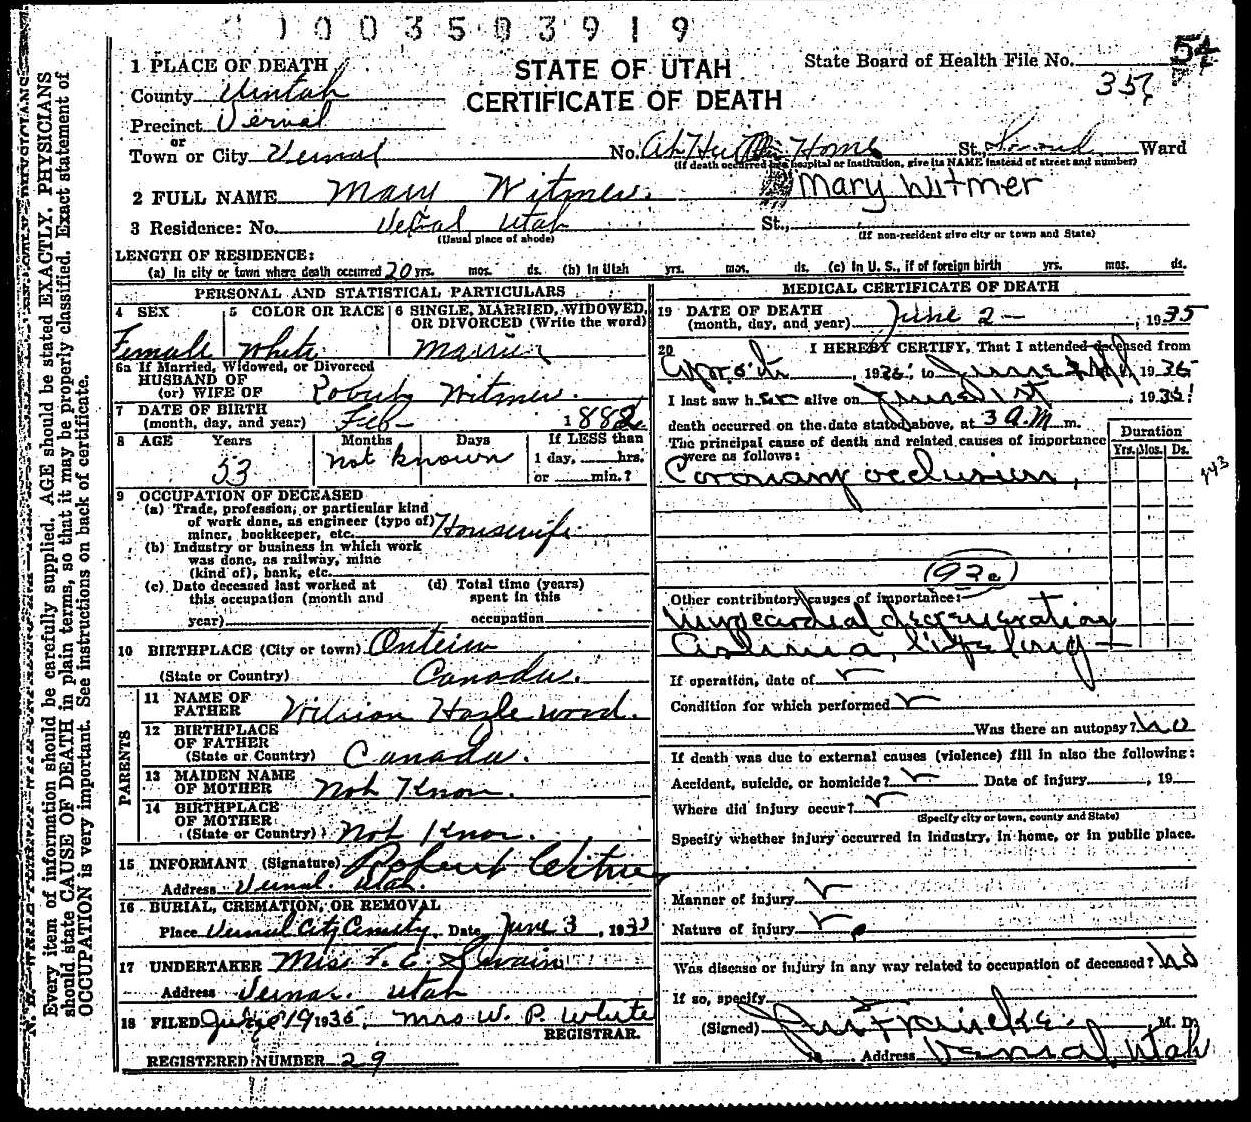 1003503919
STATE OF UTAH
CERTIFICATE OF DEATH
State Board of Health File No. 54
357
1 PLACE OF DEATH
County Uintah
Precinct Vernal
or
Town or City Vernal No. At Her Home St., Second Ward
(If death occurred in a hospital or institution, give its NAME instead of street and number)
2 FULL NAME Mary Witmer. Mary Witmer
3 Residence: No. Vernal Utah St.,
(Usual place of abode) (If non-resident give city or town and State)
LENGTH OF RESIDENCE:
(a) In city or town where death occurred 20 yrs. mos. ds. (b) In Utah yrs. mos. ds. (c) In U. S., if of foreign birth yrs. mos. ds.
PERSONAL AND STATISTICAL PARTICULARS
4 SEX 5 COLOR OR RACE 6 SINGLE, MARRIED, WIDOWED, OR DIVORCED (Write the word)
Female White Married
6a If Married, Widowed, or Divorced
HUSBAND OF
(or) WIFE OF Robert Witmer.
7 DATE OF BIRTH
(month, day, and year) Feb- 1882
8 AGE Years Months Days If LESS than
53 not known 1 day, hrs.
or min.?
9 OCCUPATION OF DECEASED
(a) Trade, profession, or particular kind
of work done, as engineer (type of)
miner, bookkeeper, etc. Housewife
(b) Industry or business in which work
was done, as railway, mine
(kind of), bank, etc.
(c) Date deceased last worked at (d) Total time (years)
this occupation (month and spent in this
year) occupation
10 BIRTHPLACE (City or town)
(State or Country) Canada.
PARENTS
11 NAME OF
FATHER Hazlewood.
12 BIRTHPLACE
OF FATHER
(State or Country) Canada.
13 MAIDEN NAME
OF MOTHER Not Know.
14 BIRTHPLACE
OF MOTHER
(State or Country) Not Know.
15 INFORMANT (Signature) Robert Witmer
Address Vernal. Utah.
16 BURIAL, CREMATION, OR REMOVAL
Place Vernal City Date June 3, 193
17 UNDERTAKER Mrs. F. E. Swain
Address Vernal. Utah
18 FILED 19 1935, Mrs W. P. White
REGISTRAR.
REGISTERED NUMBER 29
MEDICAL CERTIFICATE OF DEATH
19 DATE OF DEATH
(month, day, and year) June 2 - , 1935
20 I HEREBY CERTIFY, That I attended deceased from
, 1935, to June , 1935
I last saw her alive on June 1st , 1935!
death occurred on the date stated above, at 3 A.M. m.
The principal cause of death and related causes of importance
were as follows:
Duration
Yrs. Mos. Ds.
Coronary occlusion,
Other contributory causes of importance:
Myocardial degeneration
Asthma, lifelong -
If operation, date of
Condition for which performed
Was there an autopsy? No
If death was due to external causes (violence) fill in also the following:
Accident, suicide, or homicide? Date of injury , 19
Where did injury occur?
(Specify city or town, county and State)
Specify whether injury occurred in industry, in home, or in public place.
Manner of injury
Nature of injury
Was disease or injury in any way related to occupation of deceased? No
If so, specify
(Signed) M. D.
Address Vernal, Utah
Every item of information should be carefully supplied. AGE should be stated EXACTLY. PHYSICIANS
should state CAUSE OF DEATH in plain terms, so that it may be properly classified. Exact statement of
OCCUPATION is very important. See instructions on back of certificate.